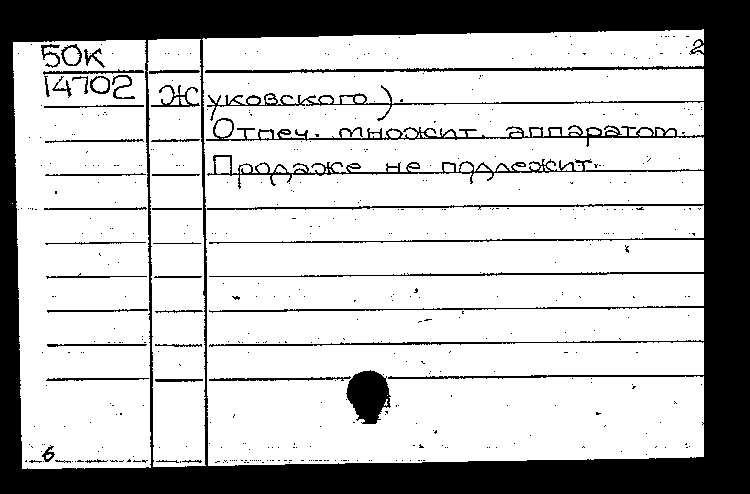 50К 2
14702 Жуковского).
Отпеч. множит. аппаратом.
Продаже не подлежит.
6